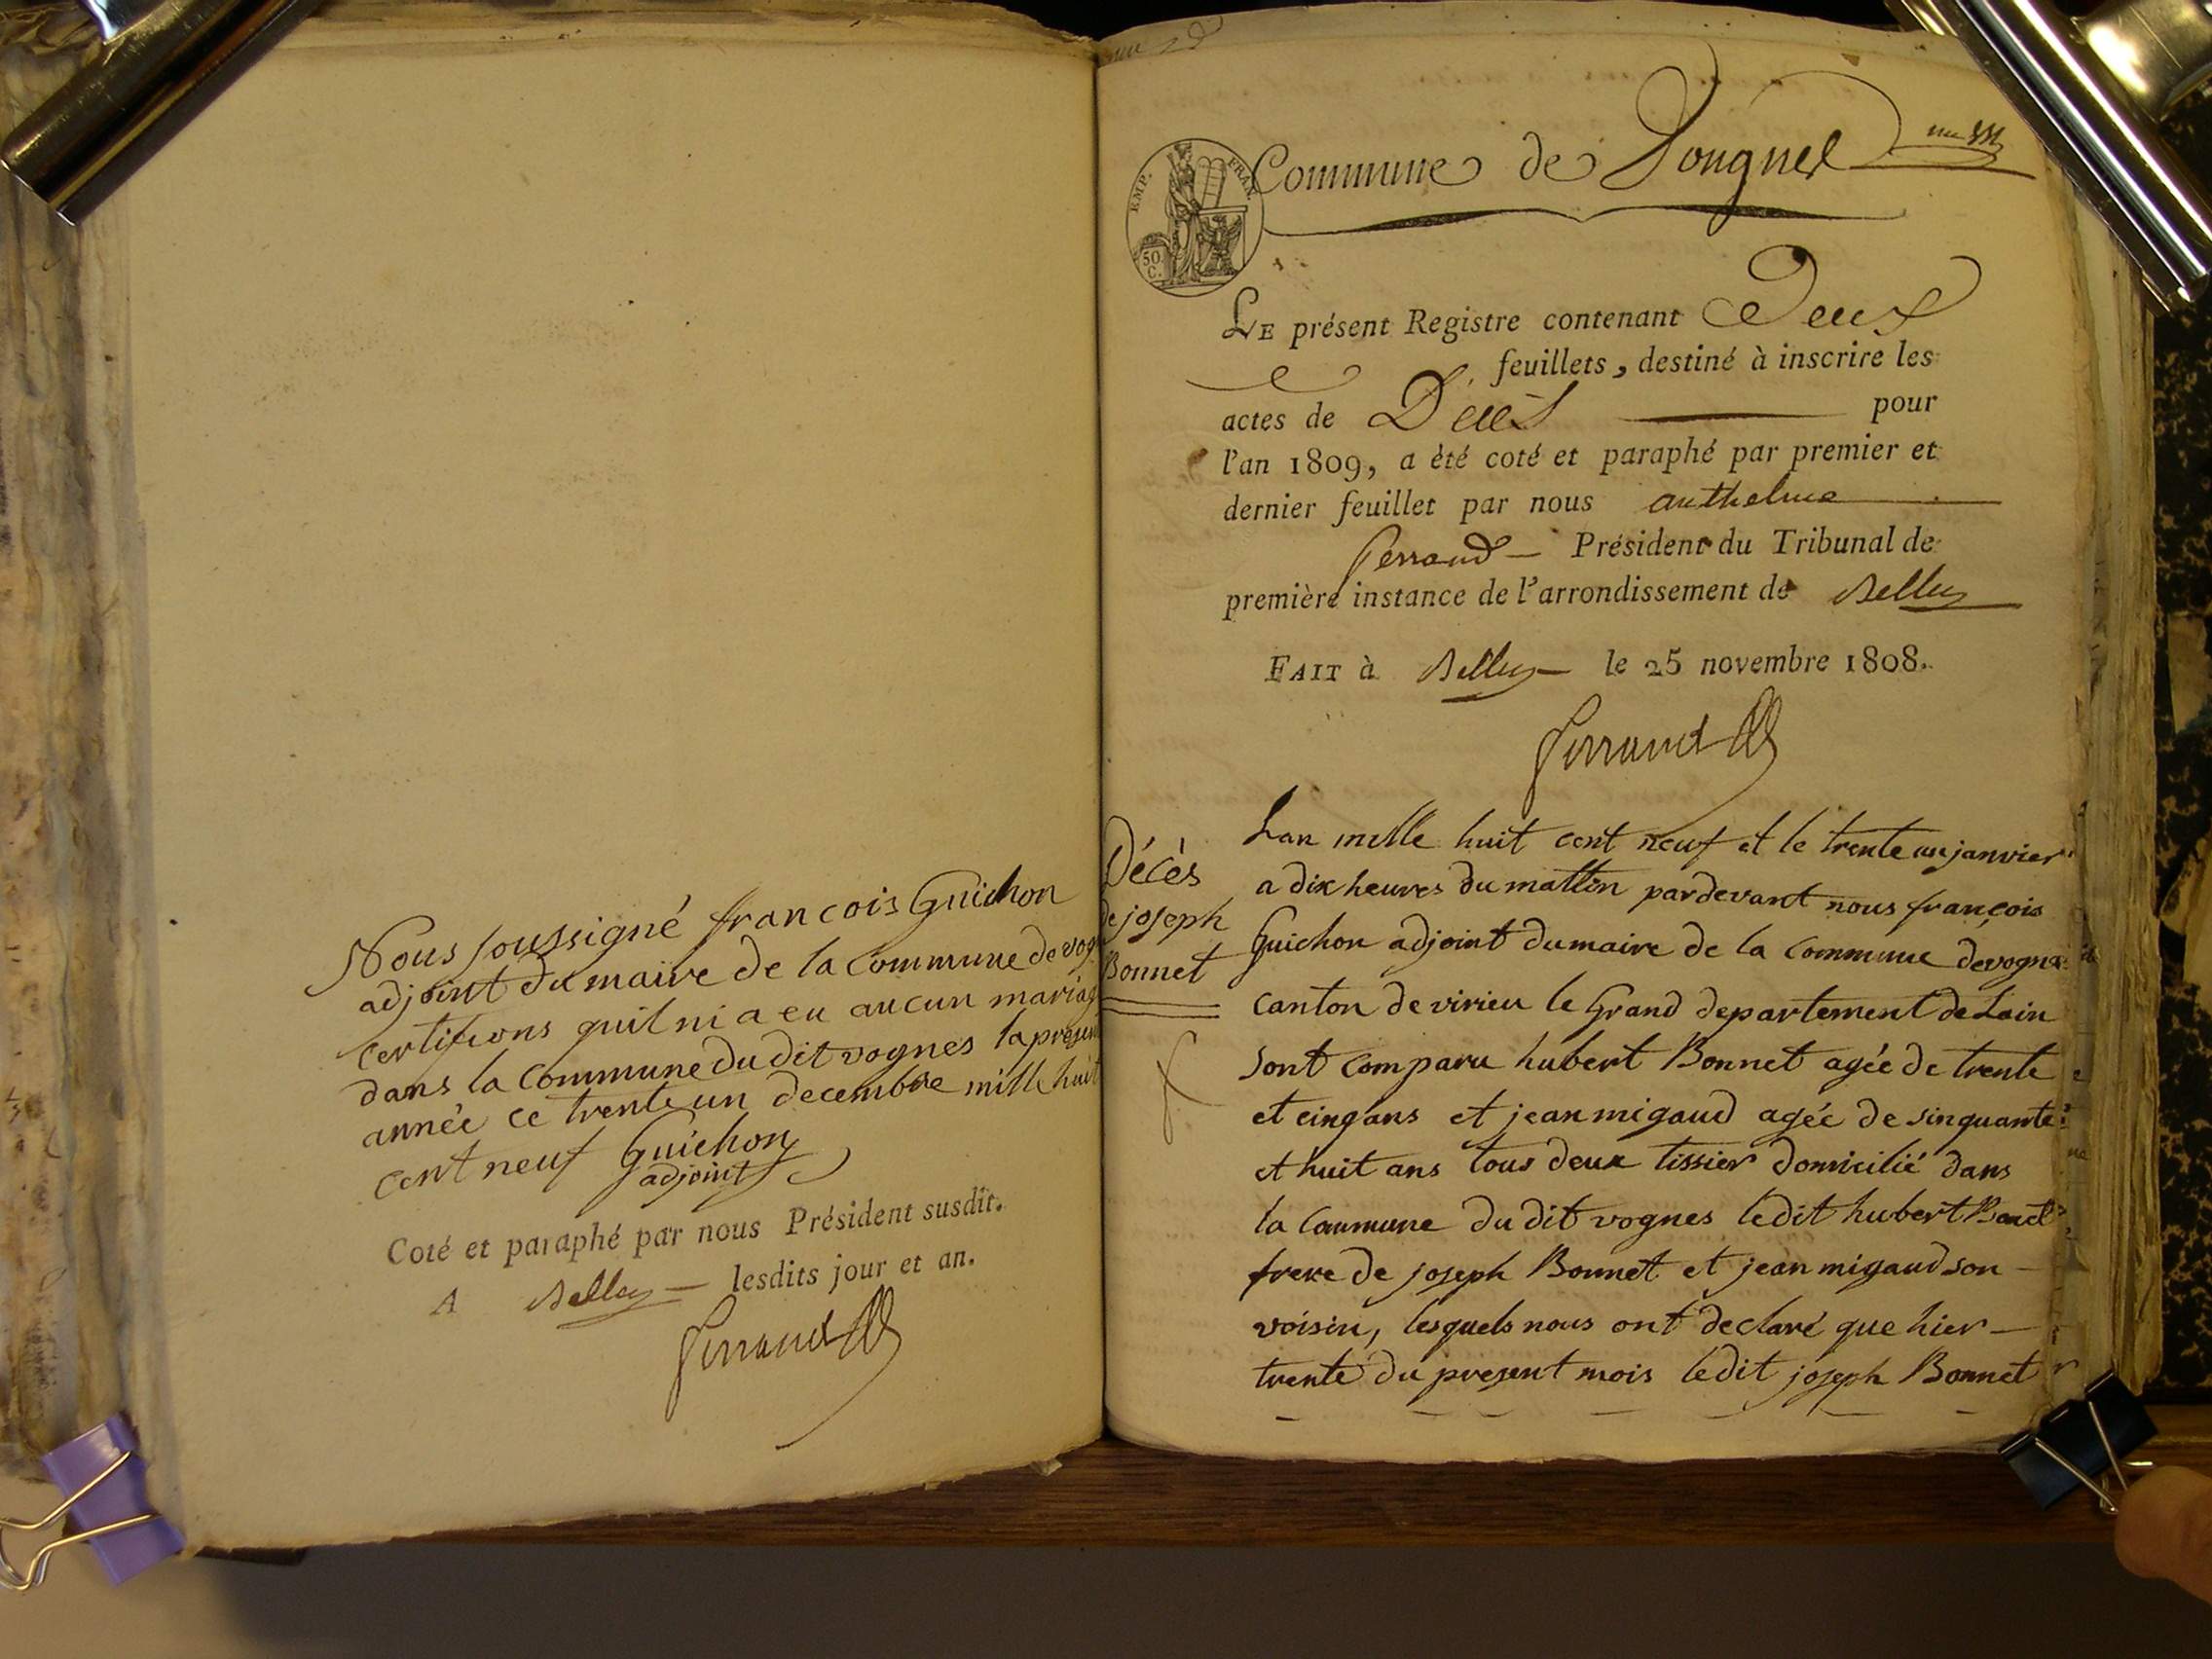 Nous soussigné francois Guichon
adjoint du maire de la Commune de vog
certifions quil ni a eu aucun mariag
dans la Commune du dit vognes la presen
année ce trente un decembre mille huit
cent neuf Guichon
adjoint
Coté et paraphé par nous Président susdit.
A Belley lesdits jour et an.
Perrand
EMP. FRAN.
50 C.
Commune de Vognes
LE présent Registre contenant Deux
feuillets, destiné à inscrire les
actes de Décès pour
l'an 1809, a été coté et paraphé par premier et
dernier feuillet par nous anthelme
Perrand Président du Tribunal de
première instance de l'arrondissement de Belley
FAIT à Belley le 25 novembre 1808.
Perrand
Décès
de joseph
Bonnet
Lan mille huit cent neuf et le trente un janvier
a dix heures du mattin pardevant nous françois
Guichon adjoint du maire de la Commune de vogne
Canton de virieu le Grand departement de Lain
sont comparu hubert Bonnet agée de trente
et cinq ans et jean migaud agée de sinquante
et huit ans tous deux tissier domicilié dans
la Commune du dit vognes ledit hubert Bonet
frere de joseph Bonnet et jean migaud son
voisin, lesquels nous ont declaré que hier
trente du present mois ledit joseph Bonnet